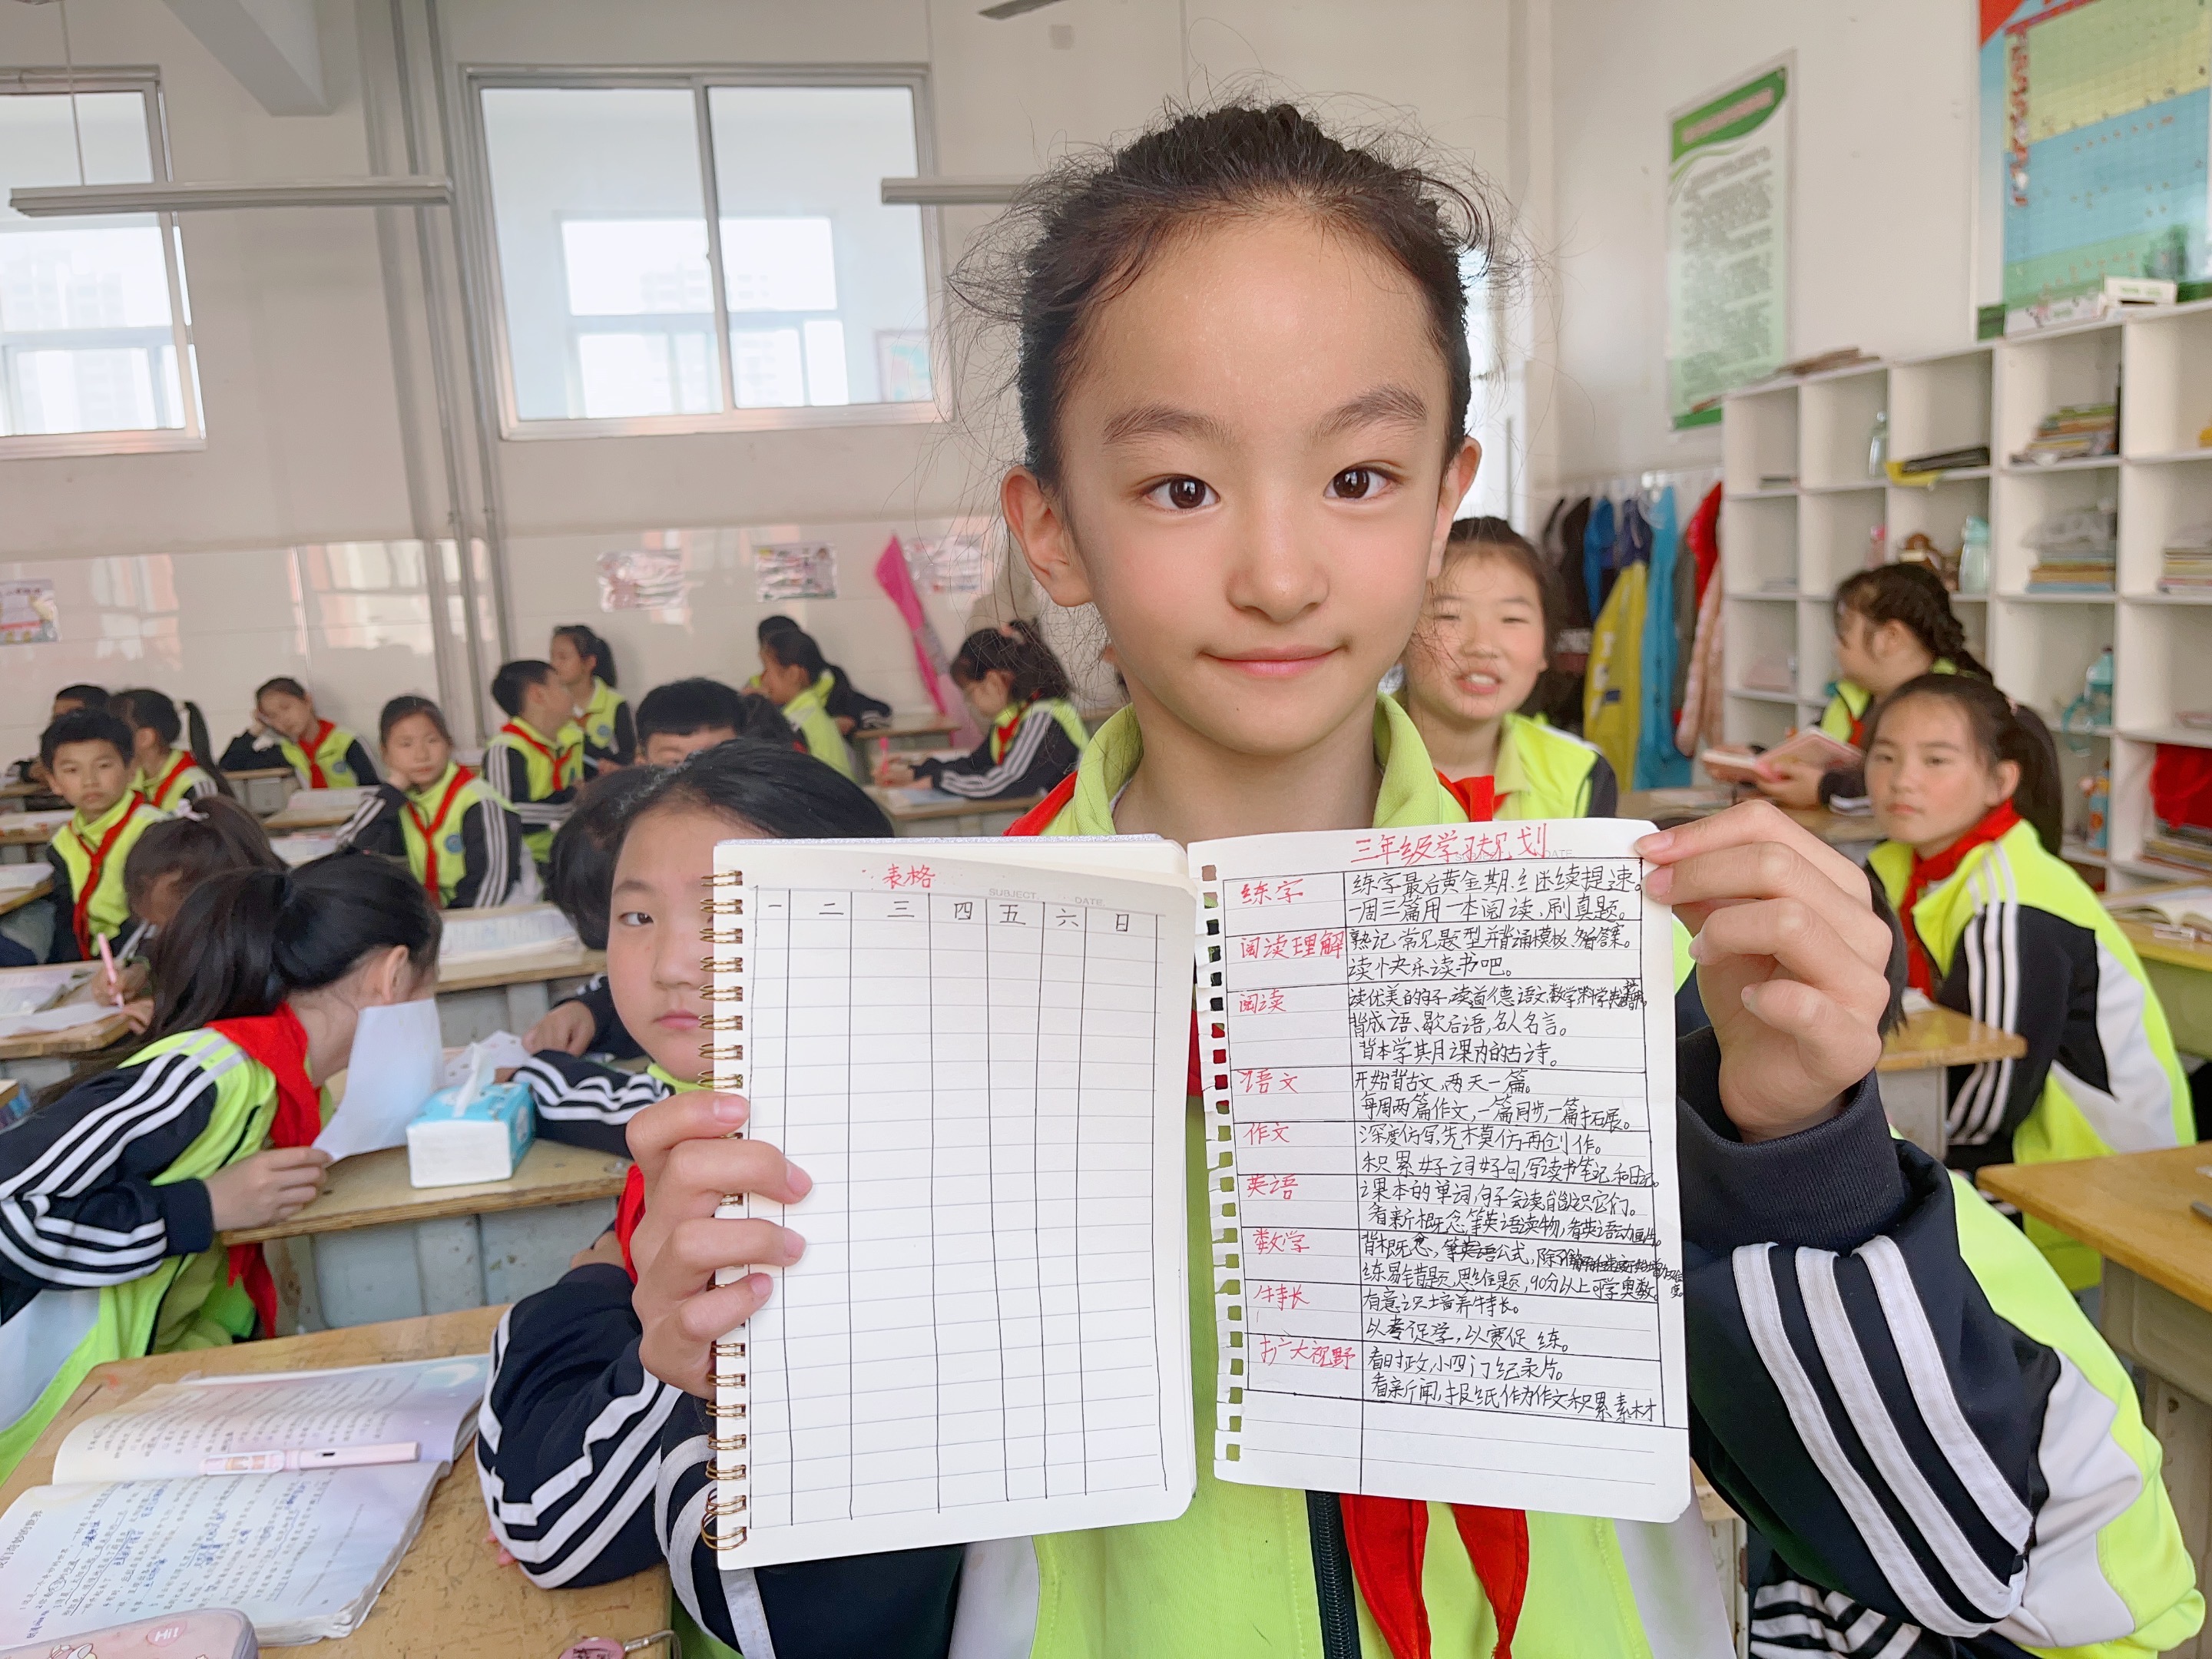 表格
SUBJECT: DATE
一 二 三 四 五 六 日
三年级学习规划
练字 练字最后黄金期,兰断续提速。
一周三篇用一本阅读,刷真题。
阅读理解 熟记常见题型并背诵模板,多看答案。
读小快乐读书吧。
阅读 读优美的句子,读首德语文数学科学
背成语、歇后语,名人名言。
背本学其月课内的古诗。
语文 开始背古文,两天一篇。
每周两篇作文,一篇同步,一篇扩展。
作文 深度仿写,先模仿再创作。
积累好词好句,写读书笔记和日记。
英语 课本的单词,句子会读能识它们。
看新概念等英语读物,看英语动画片。
数学 背概念,等英语公式,除
练易错题,思维题,90分以上可学奥数。
特长 有意识培养特长。
以考促学,以赛促练。
扩大视野 看时政,小四门纪录片。
看新闻,报纸作为作文积累素材